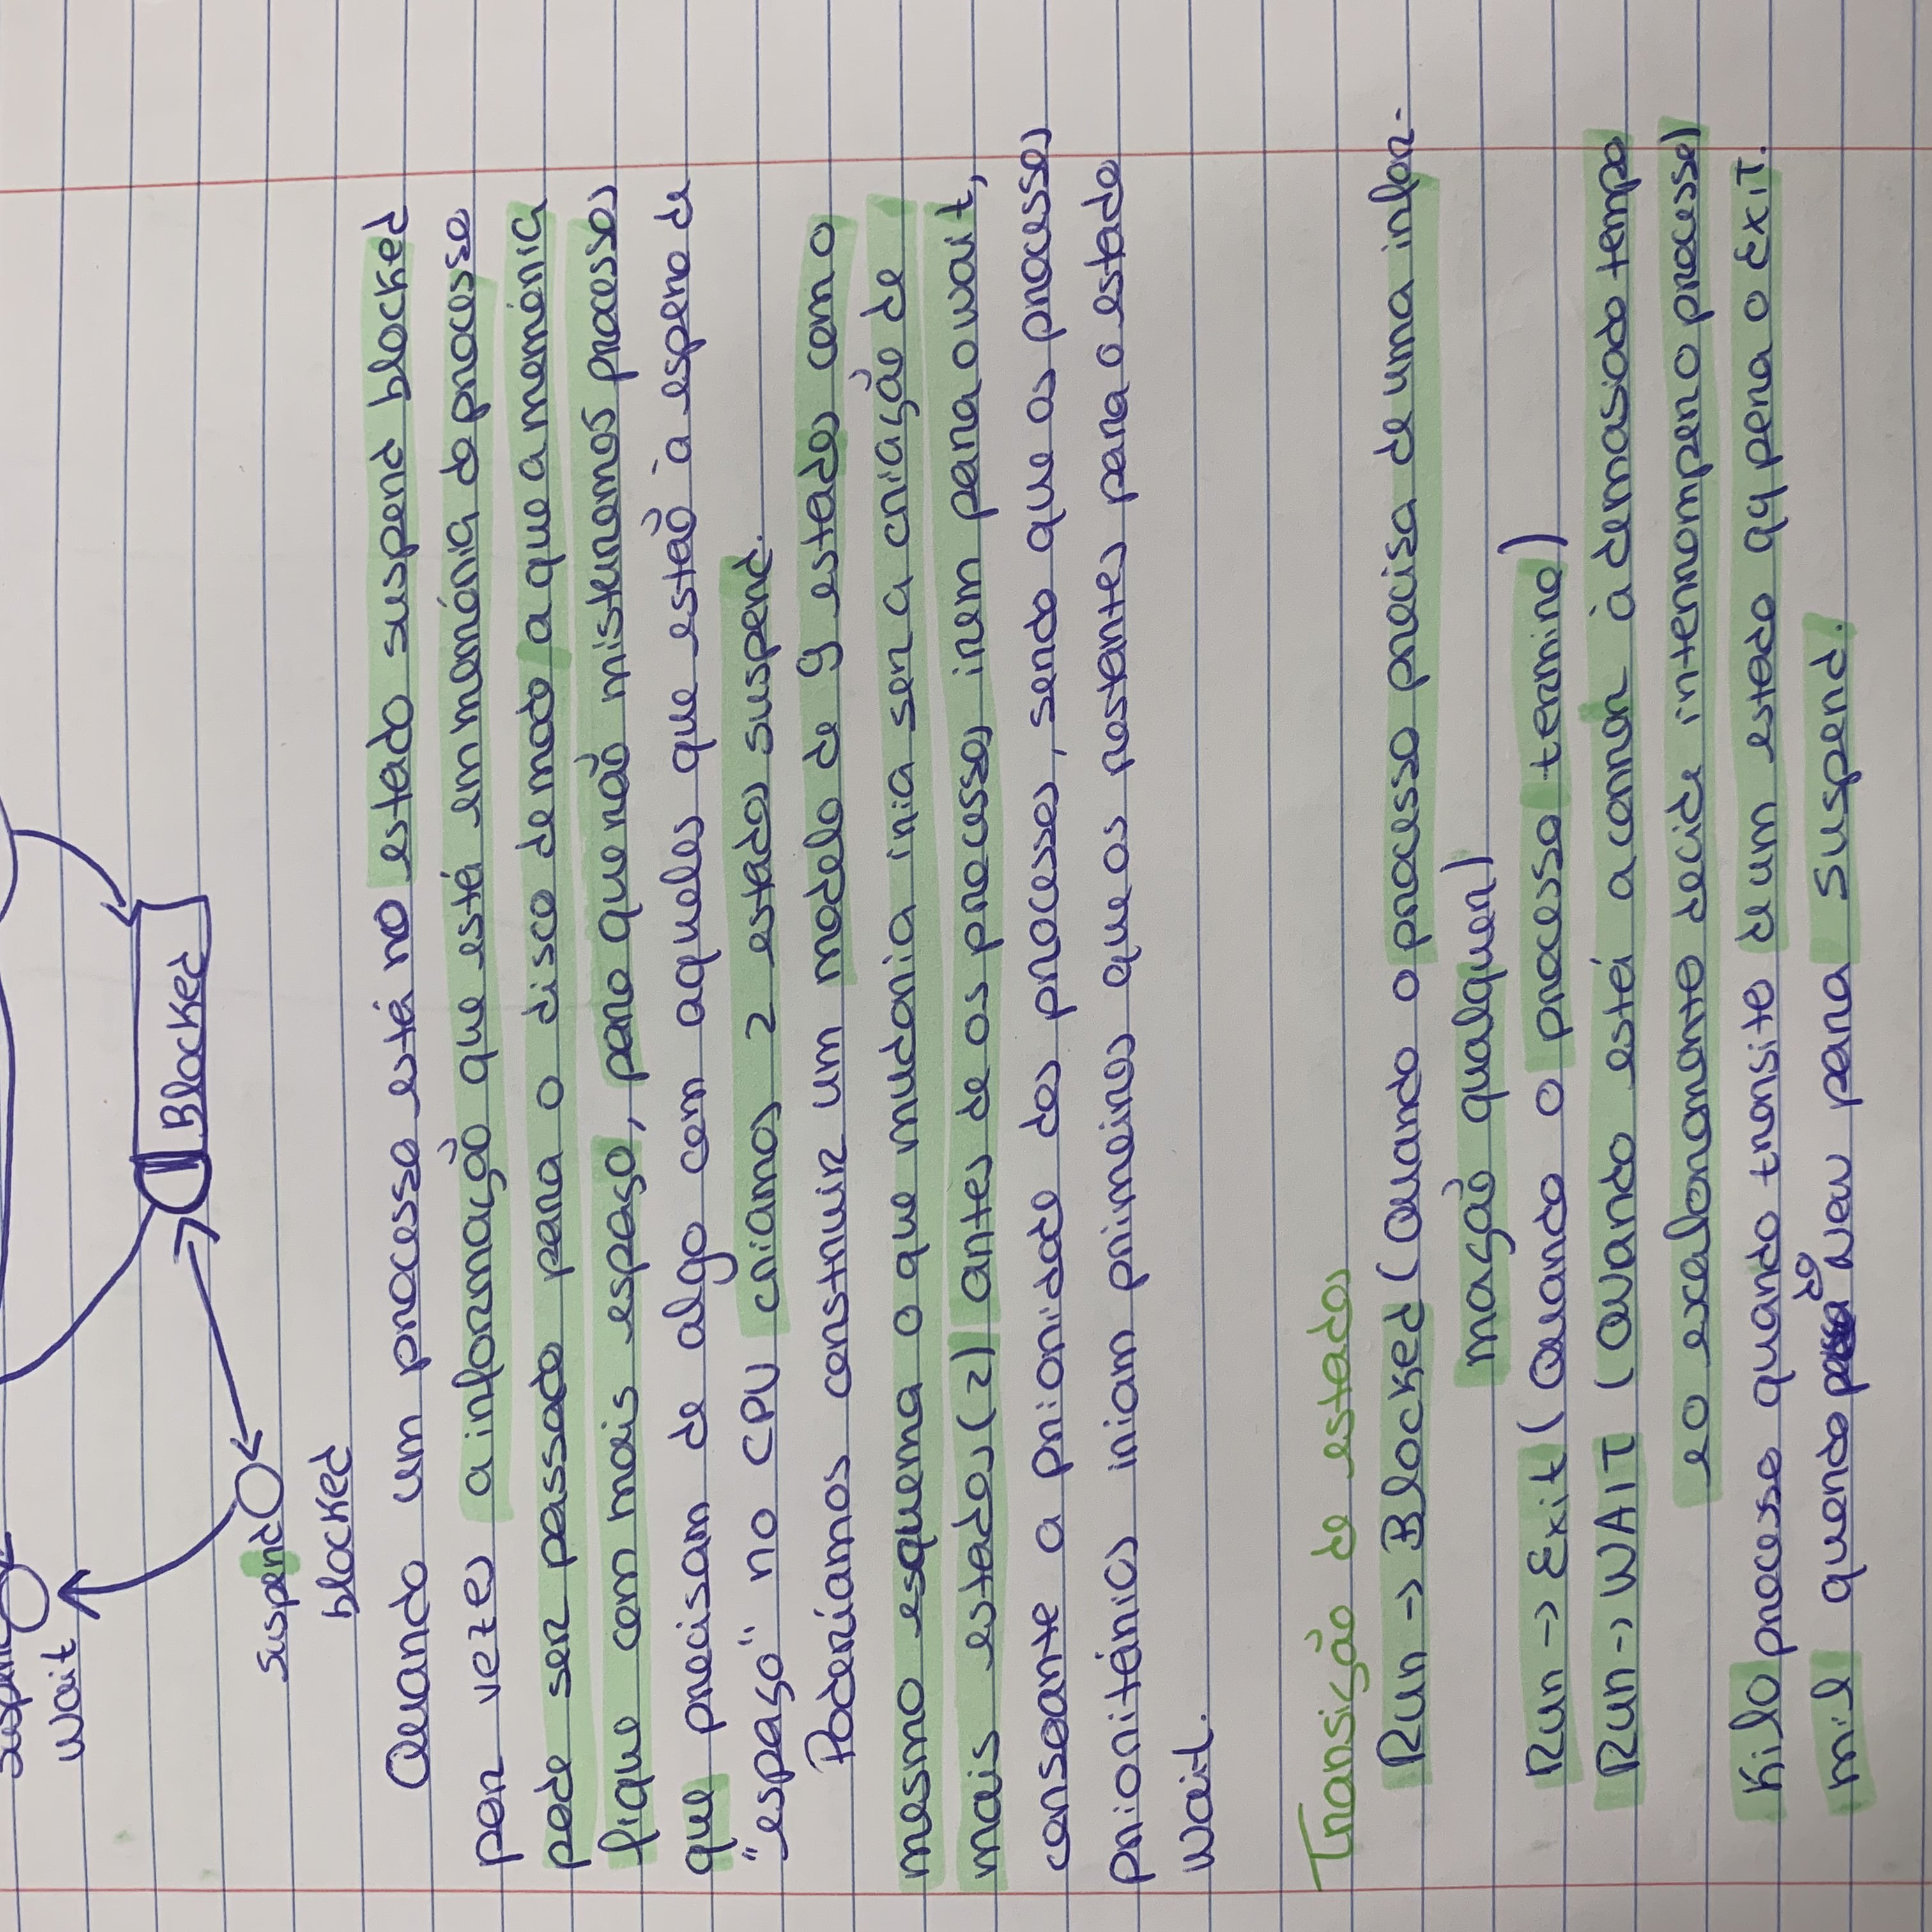 Wait
Blocked
suspend
blocked
Quando um processo está no estado suspend blocked
por vezes a informação que está em memória do processo
pode ser passado para o disco de modo a que a memória
fique com mais espaço, para que não misturamos processos
que precisam de algo com aqueles que estão à espera de
"espaço" no CPU criamos 2 estados suspend.
Poderíamos construir um modelo de 9 estados com o
mesmo esquema o que mudaria iria ser a criação de
mais estados (2) antes de os processos irem para o wait,
consoante a prioridade dos processos, sendo que os processos
prioritários iriam primeiros que os restantes para o estado
wait.
Transição de estados
Run -> Blocked (Quando o processo precisa de uma infor-
mação qualquer)
Run -> Exit (Quando o processo termina)
Run -> WAIT (Quando está a correr à demasiado tempo
e o excalonamento decide interromper o processo)
Kil o processo quando transita de um estado qq para o EXIT.
quando do New para suspend.